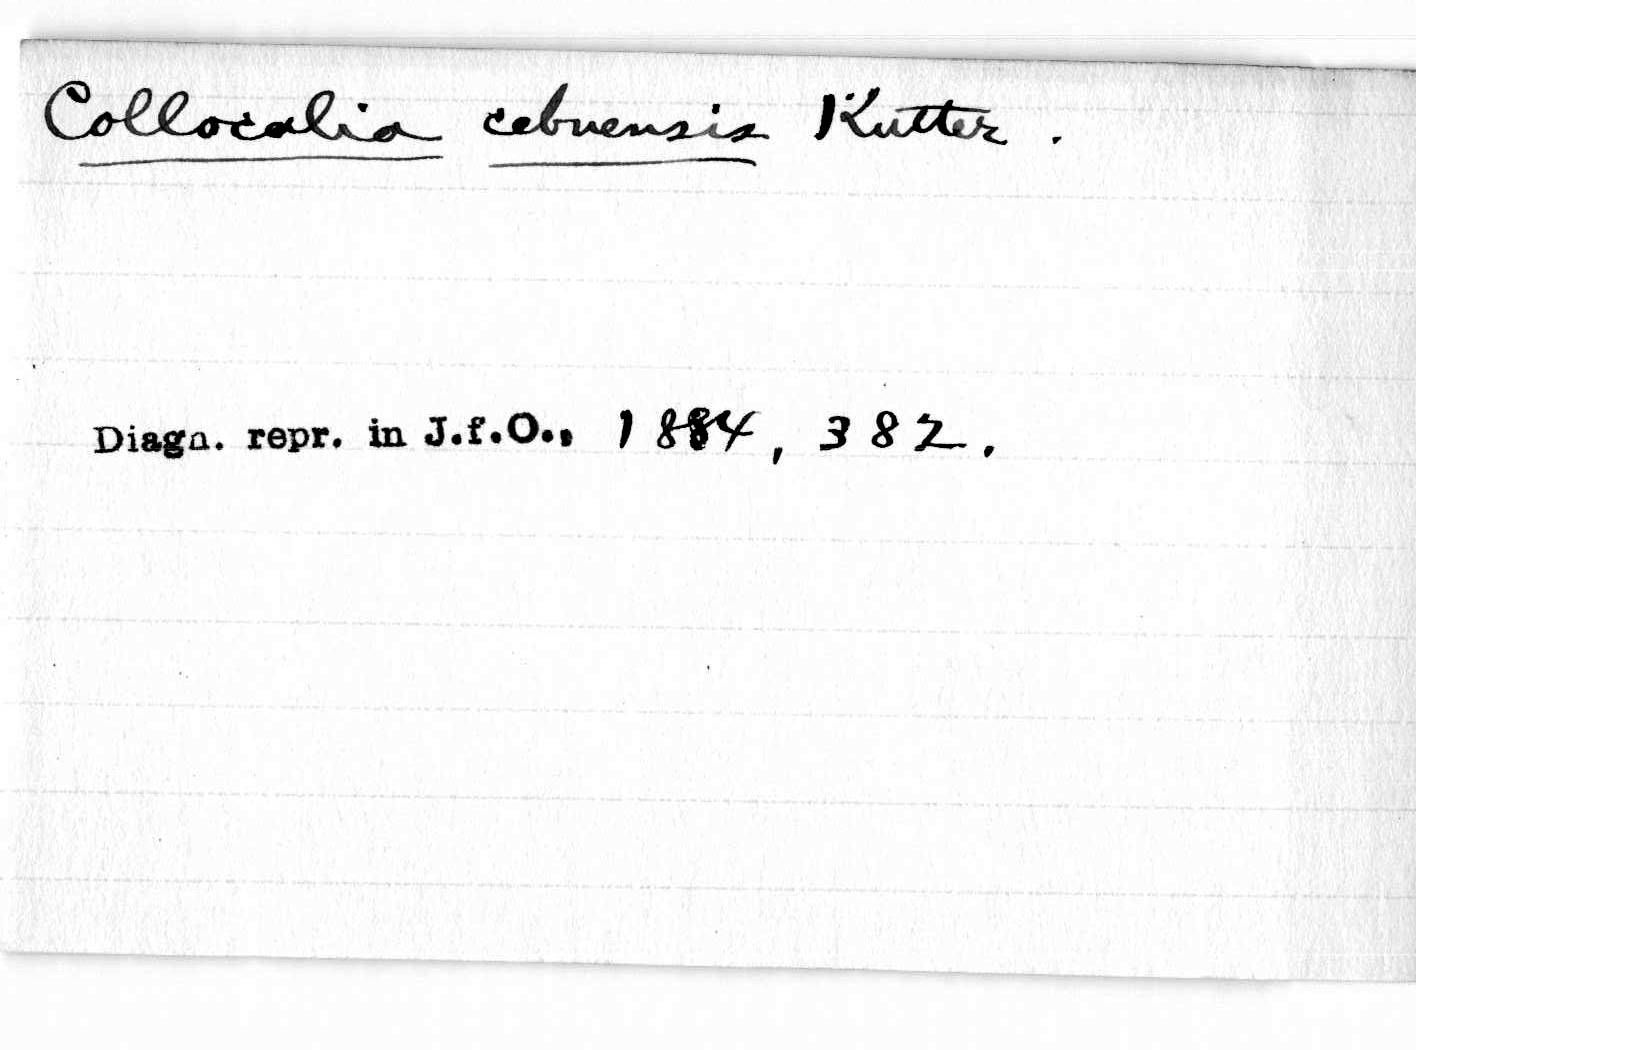 Collocalia cebuensis Kutter .
Diagn. repr. in J.f.O., 1884, 382.